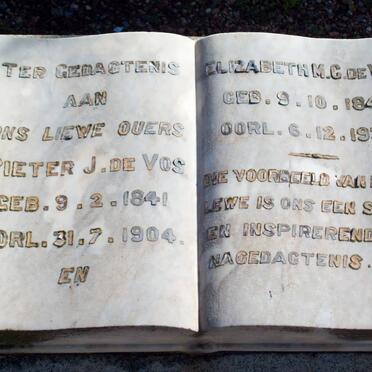 TER GEDAGTENIS
AAN
ONS LIEWE OUERS
PIETER J. DE VOS
GEB. 9. 2. 1841
OORL. 31. 7. 1904.
EN
ELIZABETH M.C. DE
GEB. 9. 10. 184
OORL. 6. 12. 19
VOORBEELD VAN
LEWE IS ONS EEN
EN INSPIREREND
NAGEDACTENIS.